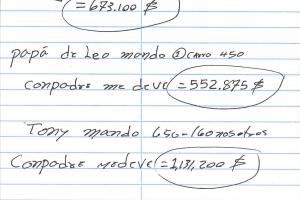 = 673.100 $
papá de Leo mando ① carro 450
conpadre me deve = 552.875 $
Tony mando 650-160 nosotros
Conpadre me deve = 1,131,200 $